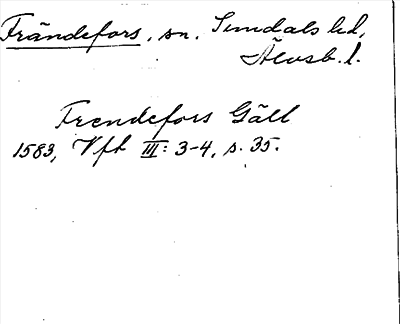 Frändefors, sn. Sundals hd,
Älvsb. l.
Frendefors Gäll
1583, Vft III: 3-4, s. 35.